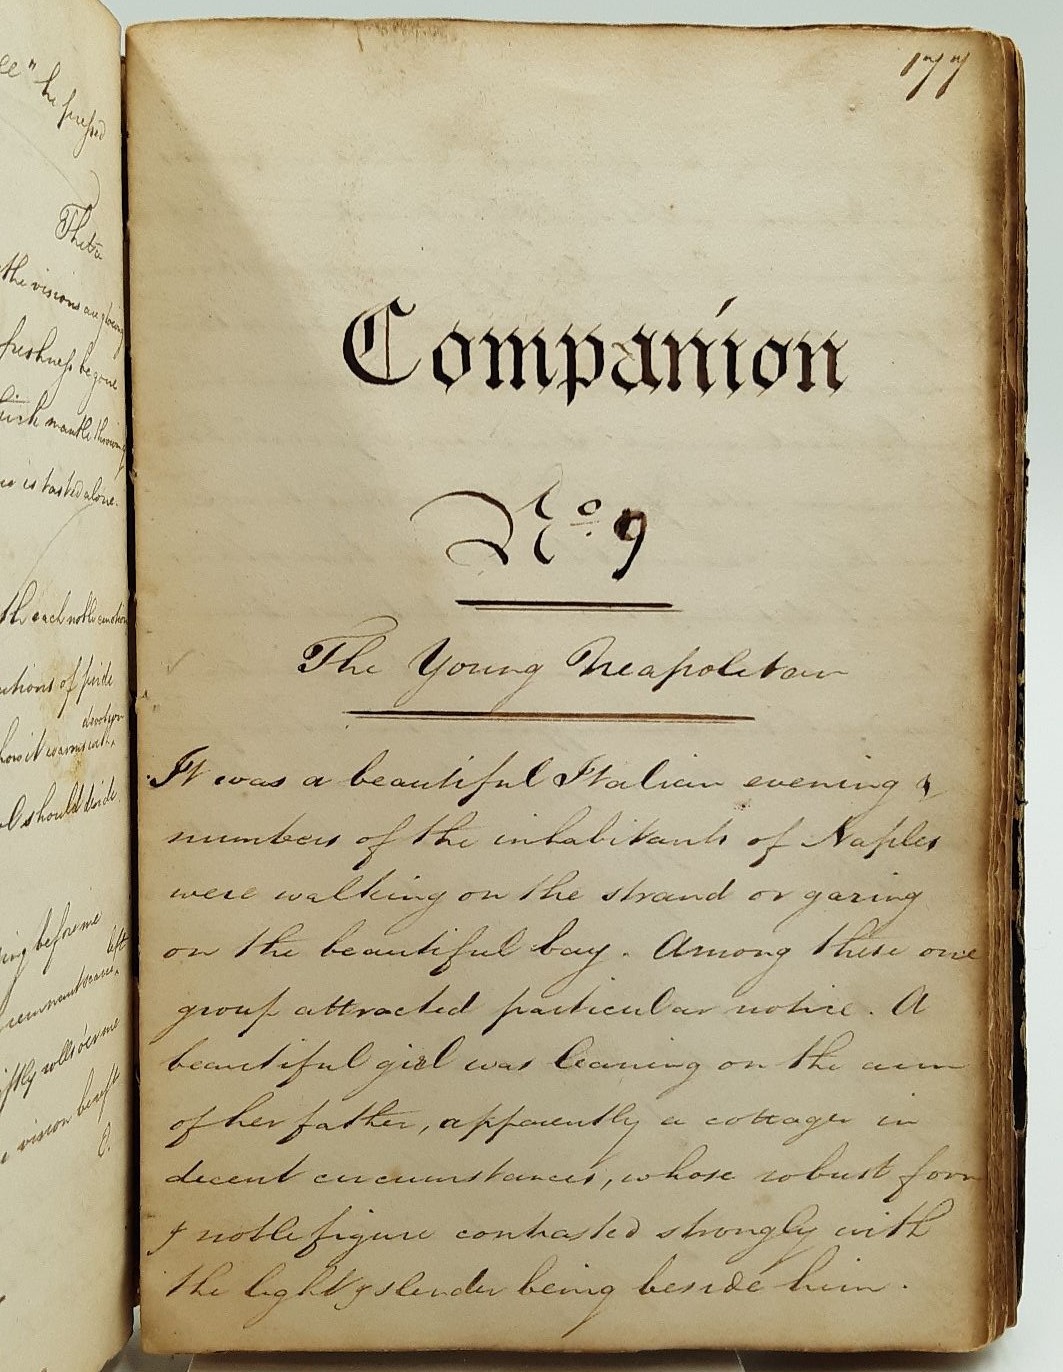 ce" he pressed
There
the visions are glowing
freshness be gone
rich mantle throwing
is tasted alone.
th each noble emotion
utions of pride
devotion
how it warms with
l should divide
ing before me
left
iftly rolls o'er me
vision bereft
C.
177
Companion
No 9
The Young Neapolitan
It was a beautiful Italian evening &
numbers of the inhabitants of Naples
were walking on the strand or gazing
on the beautiful bay. Among these one
group attracted particular notice. A
beautiful girl was leaning on the arm
of her father, apparently a cottager in
decent circumstances, whose robust form
& noble figure contrasted strongly with
the light & slender being beside him.